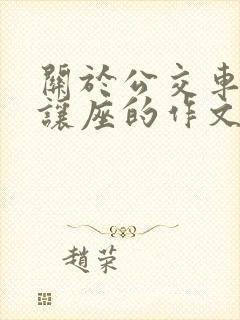 關於公交車
讓座的作文
趙荣